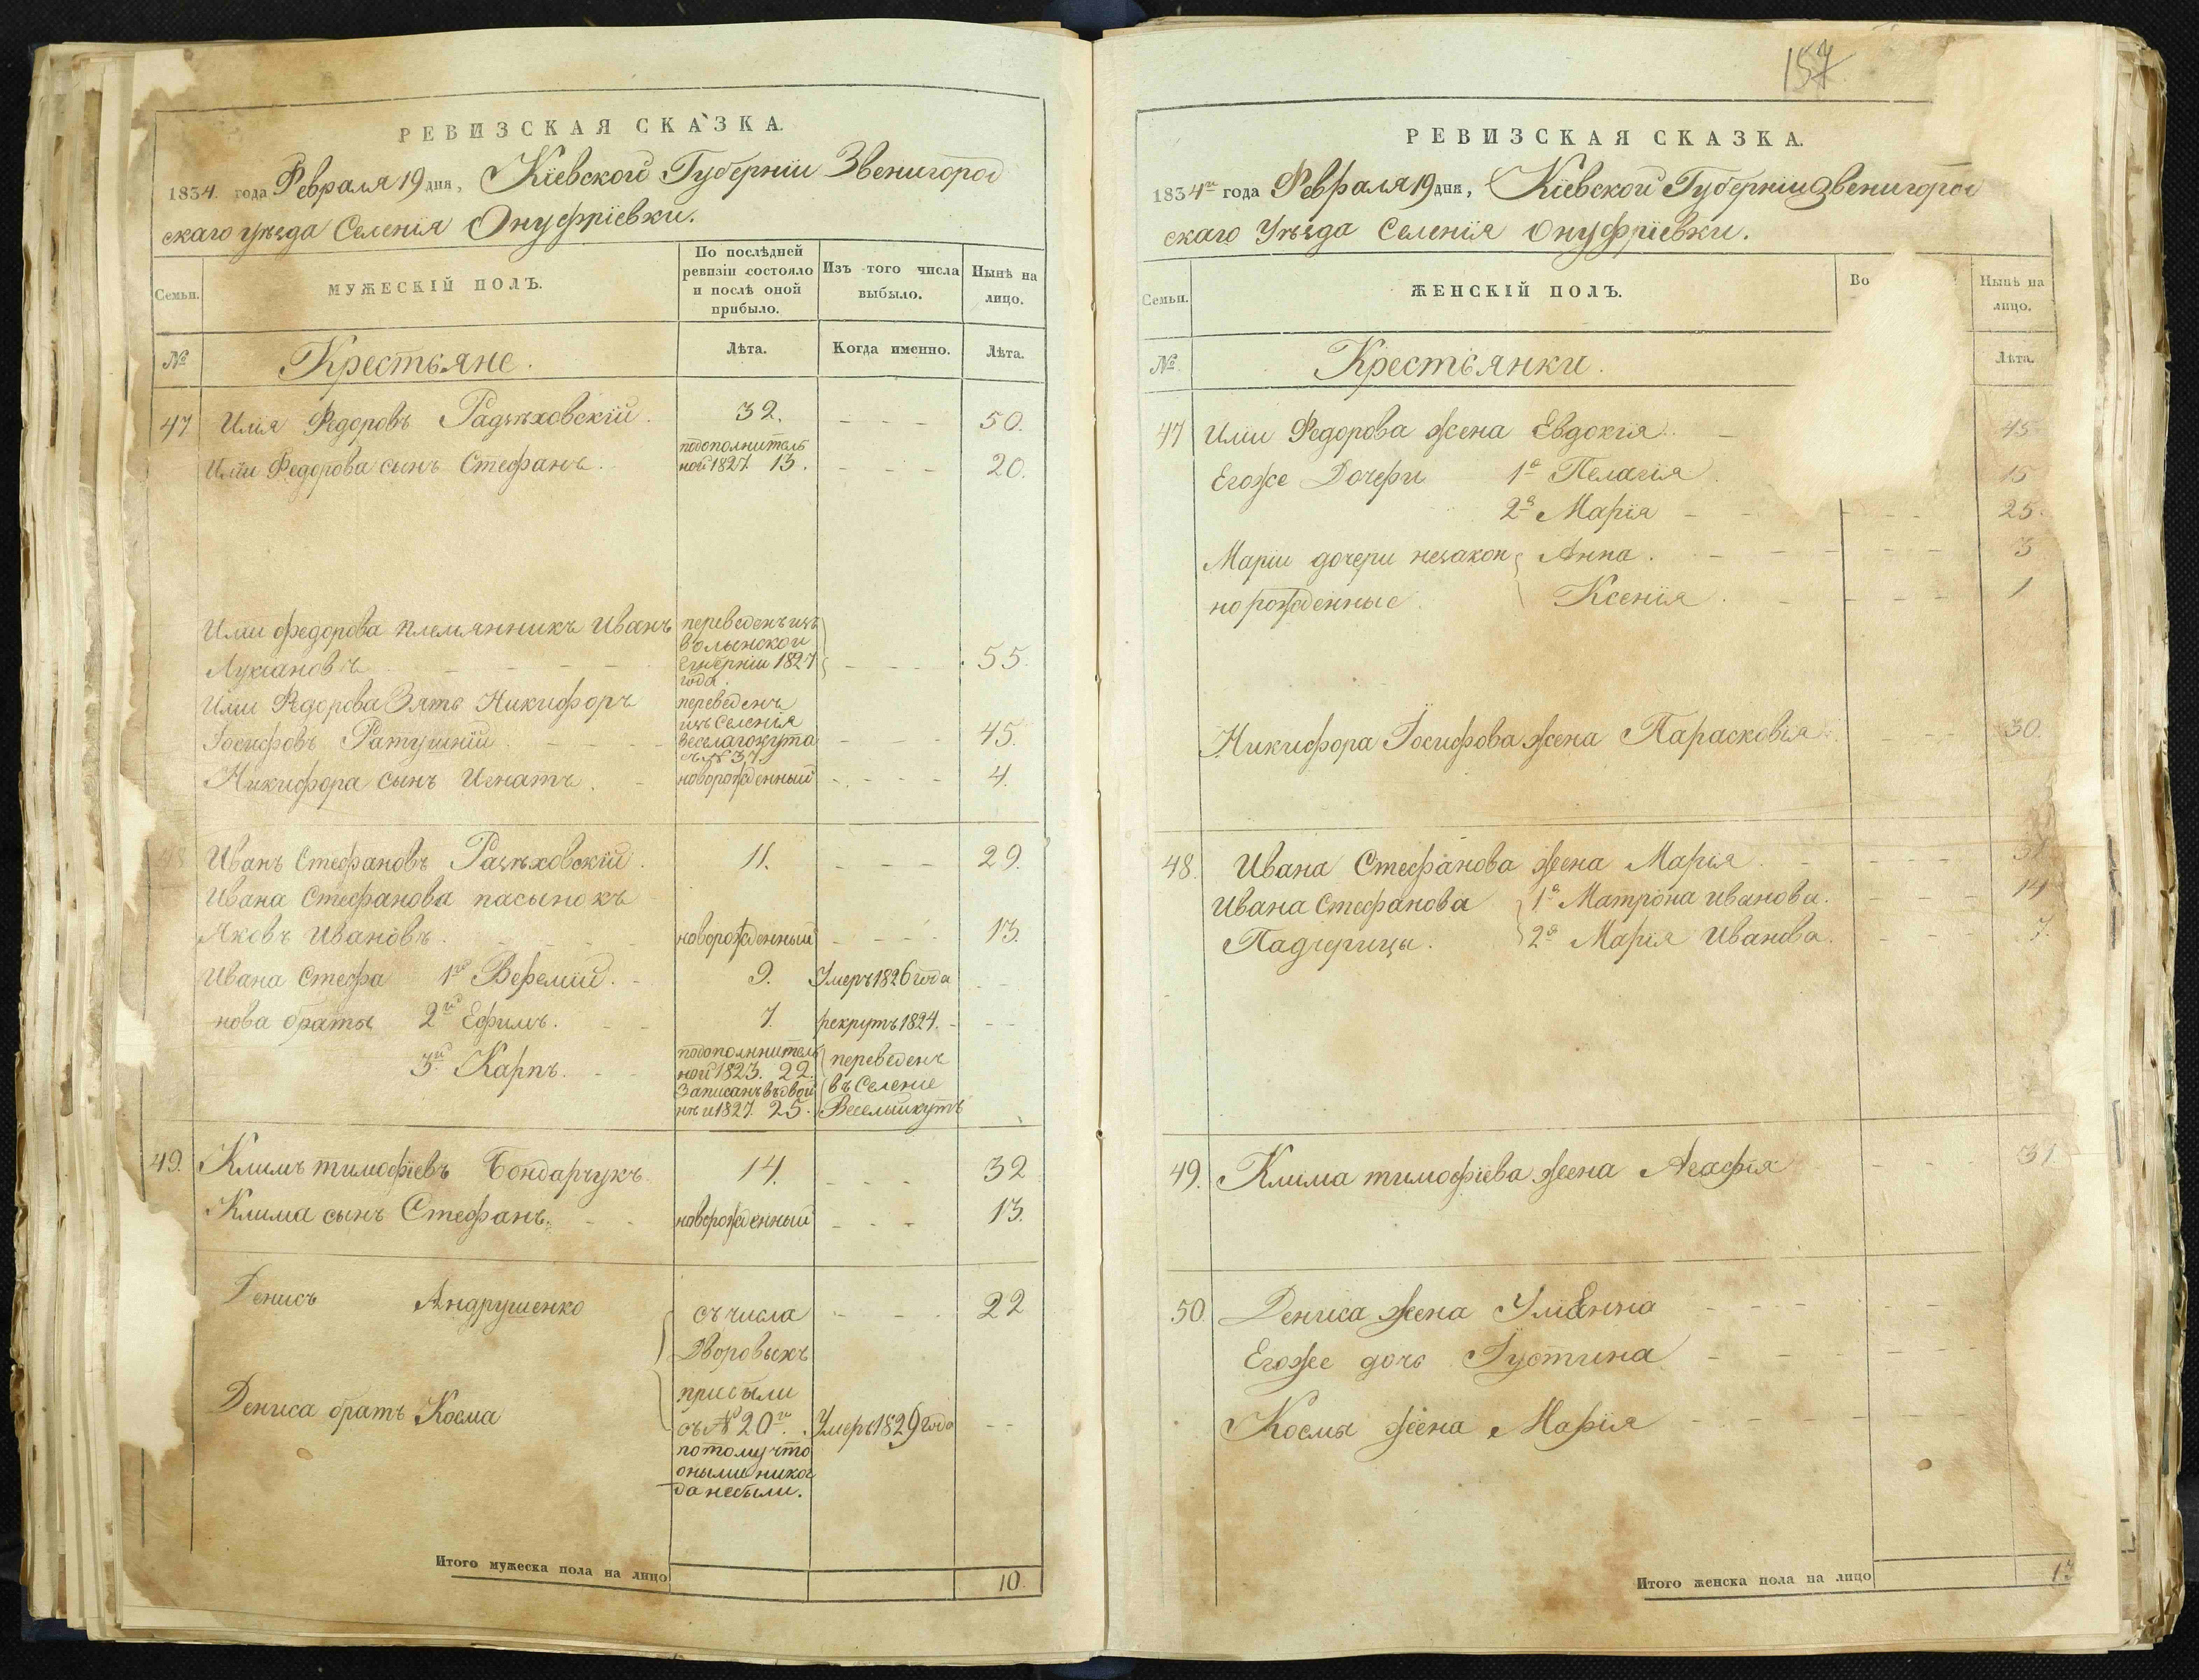 РЕВИЗСКАЯ СКАЗКА.
1834. года Февраля 19 дня, Кіевской Губерніи Звенигород
скаго уѣзда Селенія Онуфріевки.
Семьи.
МУЖЕСКІЙ ПОЛЪ.
По послѣдней
ревизіи состояло
и послѣ оной
прибыло.
Изъ того числа
выбыло.
Нынѣ на
лицо.
№
Крестьяне.
Лѣта.
Когда именно.
Лѣта.
47 Илія Федоровъ Радѣховскій. 32. - - - 50.
Иліи Федорова сынъ Стефанъ. подополнитель
ной 1827. 13. - - - 20.
Иліи федорова племянникъ Иванъ переведенъ изъ
волынской
Лукіановъ - - - - губерніи 1827 - - - 55.
года.
Иліи Федорова Зять Никифоръ переведенъ
изъ Селенія
Іосифовъ Ратушній. - - - веселагокута - - - 45.
съ № 37.
Никифора сынъ Игнатъ. - новорожденный - - - - 4.
48 Иванъ Стефановъ Радѣховскій. 11. - - - 29.
Ивана Стефанова пасынокъ
Яковъ Ивановъ. - - - - новорожденный - - - - 13.
Ивана Стефа 1й Веремій. - 9. Умеръ 1826 года - -
нова браты 2й Ефимъ. - - 7. рекрутъ 1824. - - -
3й Карпъ. - - подополнитель
ной 1823. 22. переведенъ
Записанъ вѣдвой въ Селеніе
нѣ и 1827. 25. Веселыйкутъ
49. Климъ тимофіевъ Бондарчукъ. 14. - - - 32
Клима сынъ Стефанъ. - - новорожденный - - - 13.
Денисъ Андрушенко съ числа - - - 22
Дворовыхъ
прибыли
Дениса братъ Косма съ № 20го. Умеръ 1829 года - -
потому что
оными никог
да небыли.
Итого мужеска пола на лицо 10.
157
РЕВИЗСКАЯ СКАЗКА.
1834го года Февраля 19 дня, Кіевской Губерніи Звенигород
скаго Уѣзда Селенія Онуфріевки.
Семьи.
ЖЕНСКІЙ ПОЛЪ.
Во
Нынѣ на
лицо.
№
Крестьянки.
Лѣта.
47 Иліи Федорова жена Евдокія. - 45
Егоже Дочери 1я Пелагія. 15
2я Марія - - - - - 25.
Маріи дочери незакон Анна. - - - - - - 3
но рожденные Ксенія. - - - - 1
Никифора Іосифова жена Парасковія. - - - 30.
48. Ивана Стефанова жена Марія. - - - -
Ивана Стефанова 1я Матрона иванова. - - - 14
Падчерицы. 2я Марія Иванова. - - - 7.
49. Клима тимофіева жена Агафія - - 31.
50. Дениса жена Уліянна - - - - -
Егоже дочь Іустина - - - - - -
Космы жена Марія - - - - - -
Итого женска пола на лицо